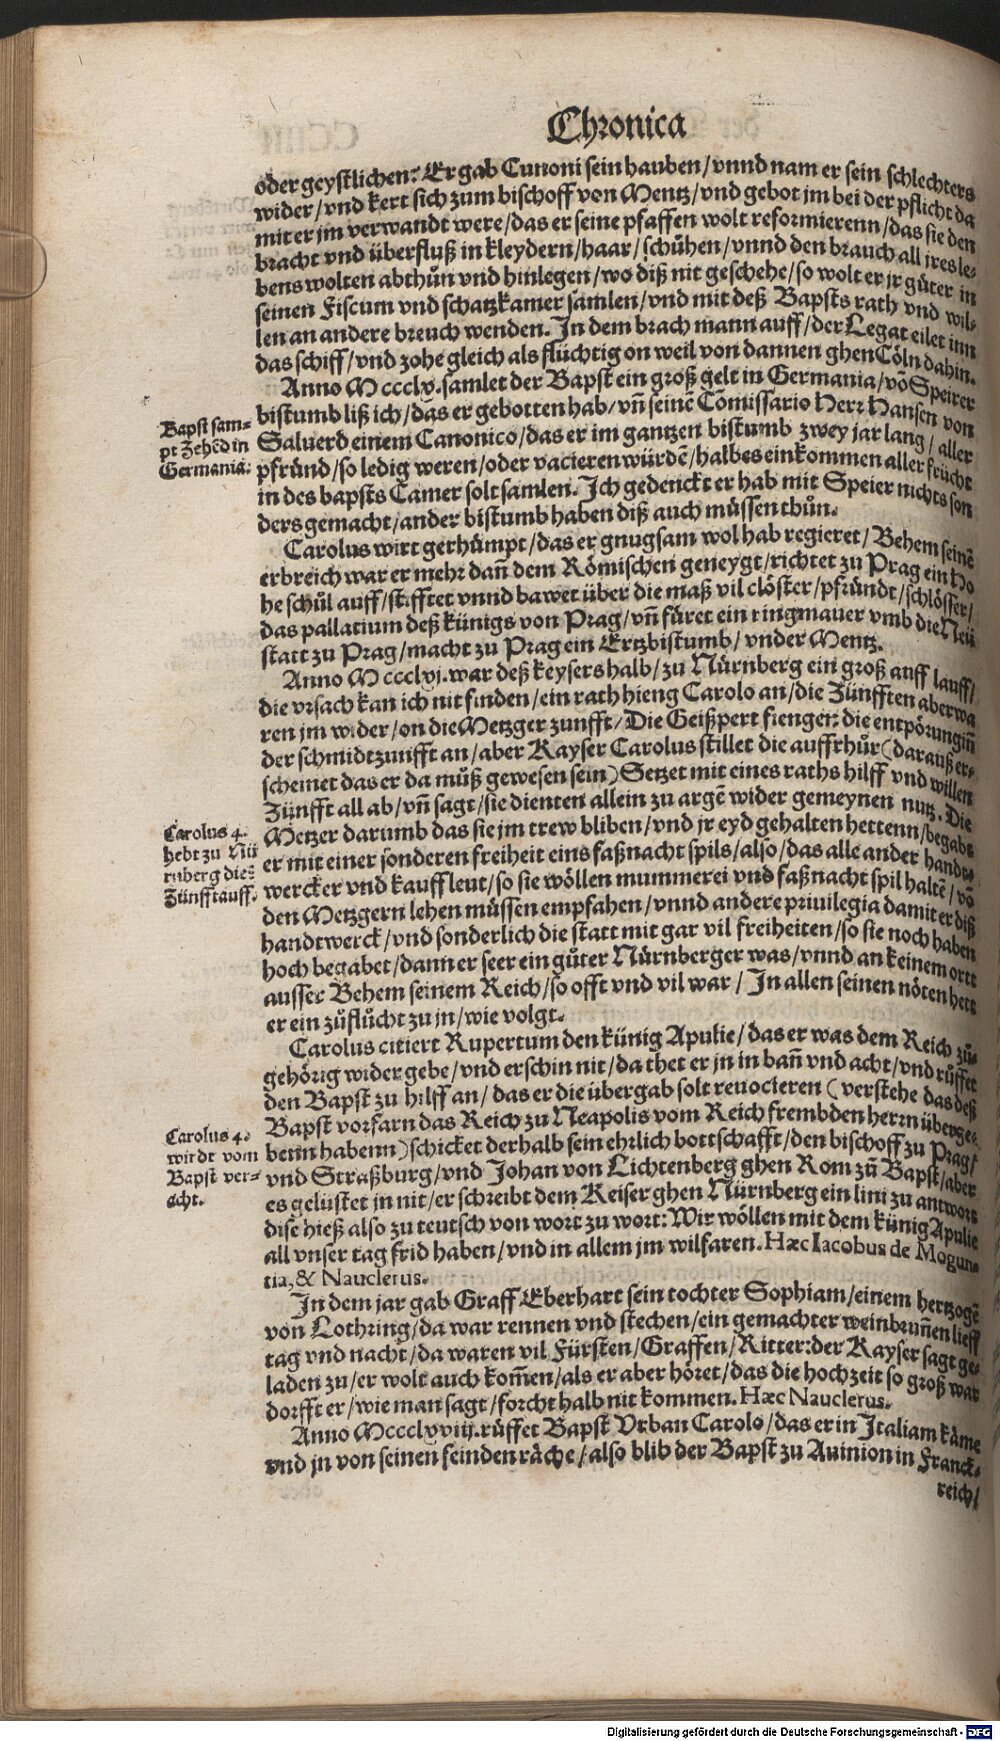 Chronica
oder geystlichen: Er gab Cunoni sein hauben/vnnd nam er sein schlechters
wider/vnd kert sich zum bischoff von Mentz/vnd gebot jm bei der pflicht da
mit er jm verwandt were/das er seine pfaffen wolt reformierenn/das sie den
bracht vnd überfluß in kleydern/haar/schůhen/vnnd den brauch all jres le-
bens wolten abthůn vnd hinlegen/wo diß nit geschehe/so wolt er jr gůter in
seinen Fiscum vnd schatzkamer samlen/vnd mit deß Bapsts rath vnd wil-
len an andere breuch wenden. In dem brach mann auff/der Legat eilet inn
das schiff/vnd zohe gleich als flüchtig on weil von dannen ghen Cöln dahin.
Anno Mccclv. samlet der Bapst ein groß gelt in Germania/võ Speirer
bistumb liß ich/das er gebotten hab/vñ seinē Cōmissario Herr Hansen von
Saluerd einem Canonico/das er im gantzen bistumb zwey jar lang/aller
pfründ/so ledig weren/oder vacieren würdē/halbes einkommen aller frücht
in des bapsts Camer solt samlen. Ich gedenckt er hab mit Speier nichts son
ders gemacht/ander bistumb haben diß auch müssen thůn.
Bapst sam-
pt Zehēd in
Germania.
Carolus wirt gerhůmpt/das er gnugsam wol hab regieret/Behem seinē
erbreich war er mehr dañ dem Römischen geneygt/richtet zu Prag ein Ho
he schůl auff/stifftet vnnd bawet über die maß vil clöster/pfründt/schlösser/
das pallatium deß künigs von Prag/vñ füret ein ringmauer vmb die Neü
statt zu Prag/macht zu Prag ein Ertzbistumb/vnder Mentz.
Anno Mccclvj. war deß keysers halb/zu Nürnberg ein groß auff lauff/
die vrsach kan ich nit finden/ein rath hieng Carolo an/die Zünfften aber wa
ren jm wider/on die Metzger zunfft/Die Geißpert fiengen die entpörung iñ
der schmidtzunfft an/aber Kayser Carolus stillet die auffrhůr (darauß er-
scheinet das er da můß gewesen sein) Setzet mit eines raths hilff vnd willen
Zünfft all ab/vñ sagt/sie dienten allein zu argē wider gemeynen nutz. Die
Metzer darumb das sie jm trew bliben/vnd jr eyd gehalten hettenn/begabt
er mit einer sonderen freiheit eins faßnacht spils/also/das alle ander handt-
wercker vnd kauffleut/so sie wöllen mummerei vnd faßnacht spil haltē/võ
den Metzgern lehen müssen empfahen/vnnd andere priuilegia damit er diß
handtwerck/vnd sonderlich die statt mit gar vil freiheiten/so sie noch haben
hoch begabet/dann er seer ein gůter Nürnberger was/vnnd an keinem ortt
ausser Behem seinem Reich/so offt vnd vil war/In allen seinen nöten hett
er ein zůflůcht zu jn/wie volgt.
Carolus 4.
hebt zu Nü
rnberg die
Zünfft auff.
Carolus citiert Rupertum den künig Apulie/das er was dem Reich zů-
gehörig wider gebe/vnd erschin nit/da thet er jn in bañ vnd acht/vnd rüffet
den Bapst zu hilff an/das er die übergab solt reuocieren (verstehe das deß
Bapst vorfarn das Reich zu Neapolis vom Reich frembden herrn überge-
benn habenn) schicket derhalb sein ehrlich bottschafft/den bischoff zu Prag/
vnd Straßburg/vnd Johan von Lichtenberg ghen Rom zů Bapst/aber
es gelüstet jn nit/er schreibt dem Keiser ghen Nürnberg ein lini zu antwort
dise hieß also zu teutsch von wort zu wort: Wir wöllen mit dem künig Apulie
all vnser tag frid haben/vnd in allem jm wilfaren. Hæc Iacobus de Mogun-
tia, & Nauclerus.
Carolus 4.
wirdt vom
Bapst ver-
acht.
In dem jar gab Graff Eberhart sein tochter Sophiam/einem hertzogē
von Lothring/da war rennen vnd stechen/ein gemachter weinbruñen lieff
tag vnd nacht/da waren vil Fürsten/Graffen/Ritter: der Kayser sagt ge-
laden zu/er wolt auch kom̄en/als er aber höret/das die hochzeit so groß war
dorfft er/wie man sagt/forcht halb nit kommen. Hæc Nauclerus.
Anno Mccclxviij. rüffet Bapst Vrban Carolo/das er in Italiam käme
vnd jn von seinen feinden räche/also blib der Bapst zu Auinion in Franck-
reich/
Digitalisierung gefördert durch die Deutsche Forschungsgemeinschaft - DFG